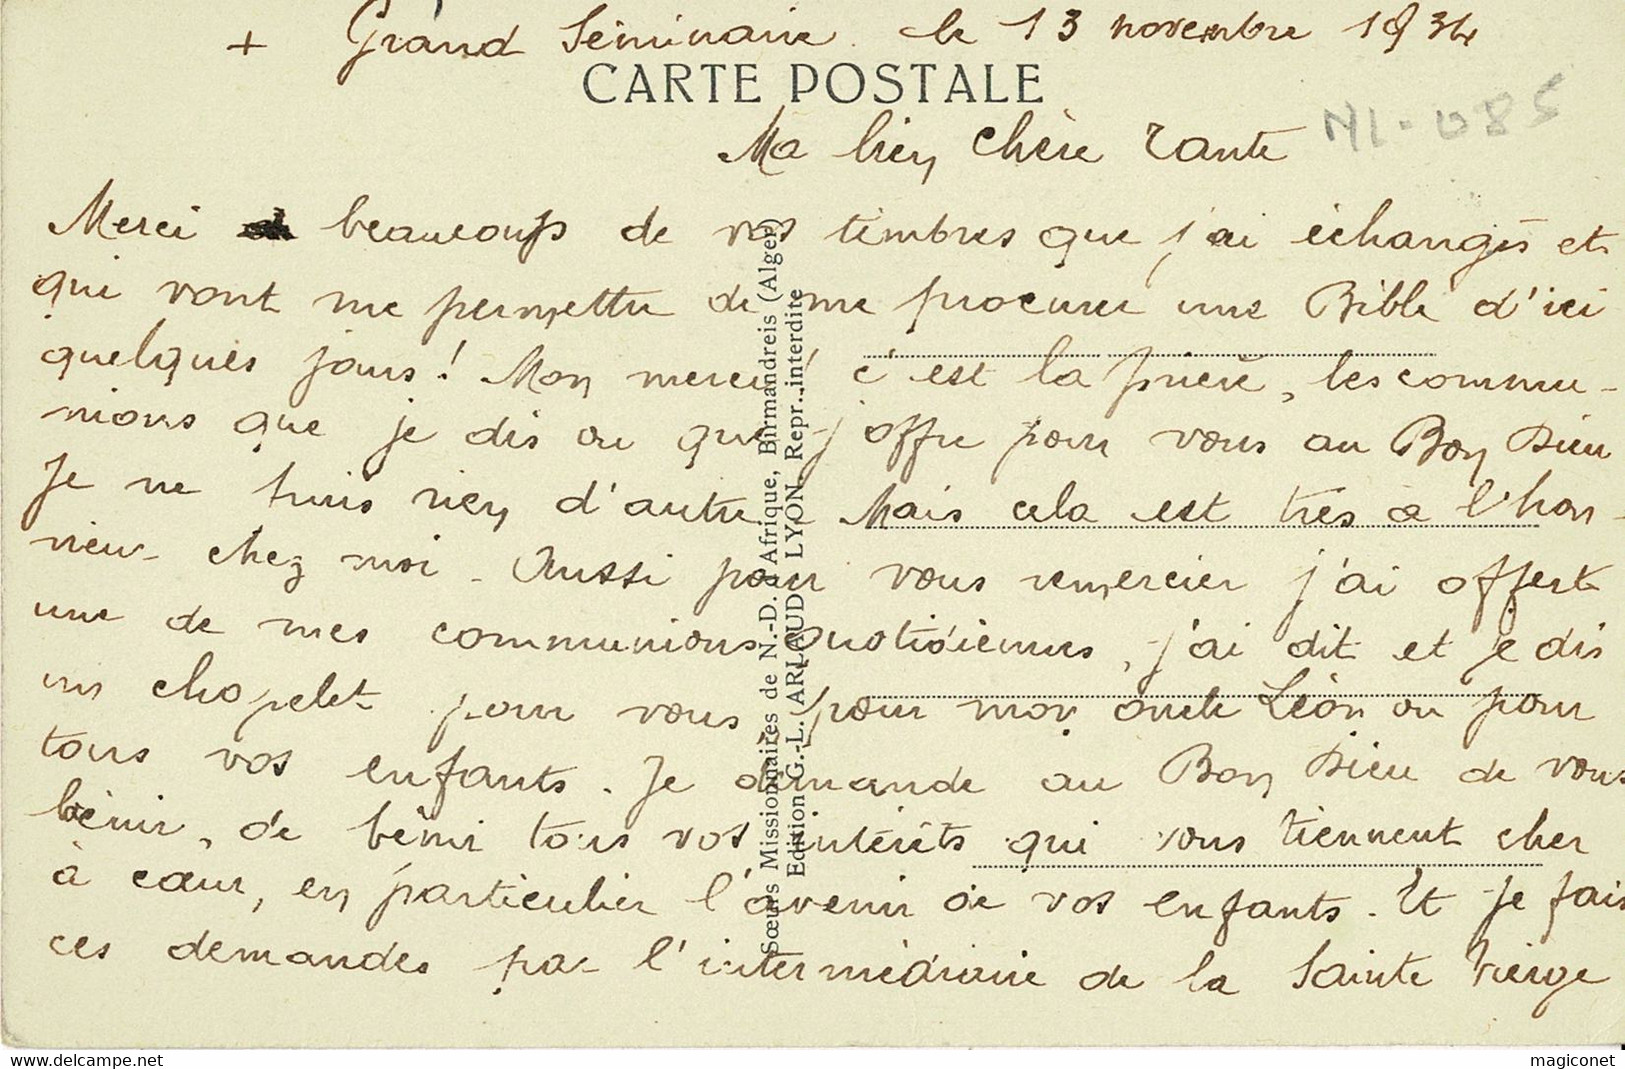 + Grand Séminaire le 13 novembre 1934
CARTE POSTALE
NL-085
Ma bien chère Tante
Merci beaucoup de vos timbres que j'ai échangés et
qui vont me permettre de me procurer une Bible d'ici
quelques jours ! Mon merci c'est la prière, les commu-
nions que je dis ou que j'offre pour vous au Bon Dieu
Je ne puis rien d'autre. Mais cela est très à l'hon-
neur chez moi. Aussi pour vous remercier j'ai offert
une de mes communions quotidiennes, j'ai dit et je dis
un chapelet pour vous, pour mon oncle Léon ou pour
tous vos enfants. Je demande au Bon Dieu de vous
bénir, de bénir tous vos intérêts qui vous tiennent cher
à cœur, en particulier l'avenir de vos enfants. Et je fais
ces demandes par l'intermédiaire de la Sainte Vierge
Sœurs Missionnaires de N.-D. d'Afrique, Birmandreis (Alger)
Edition G.-L. ARLAUD, LYON, Repr. interdite
https://www.delcampe.net
magiconet